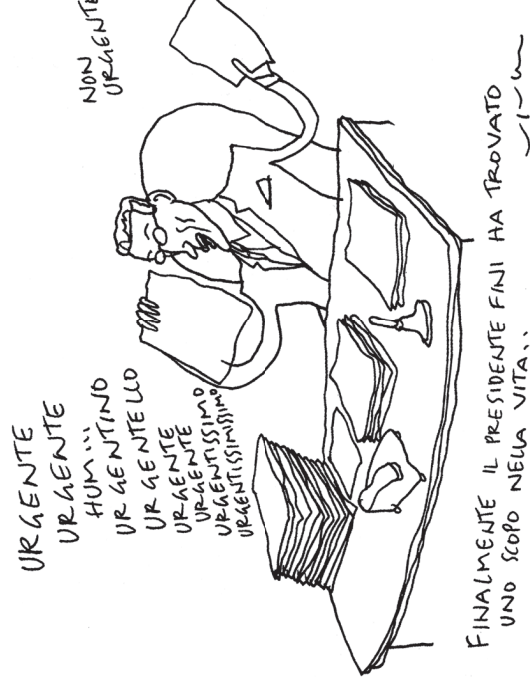 URGENTE
URGENTE
HUM...
URGENTINO
URGENTELLO
URGENTE
URGENTE
URGENTISSIMO
URGENTISSIMISSIMO
NON
URGENTE
FINALMENTE IL PRESIDENTE FINI HA TROVATO
UNO SCOPO NELLA VITA..